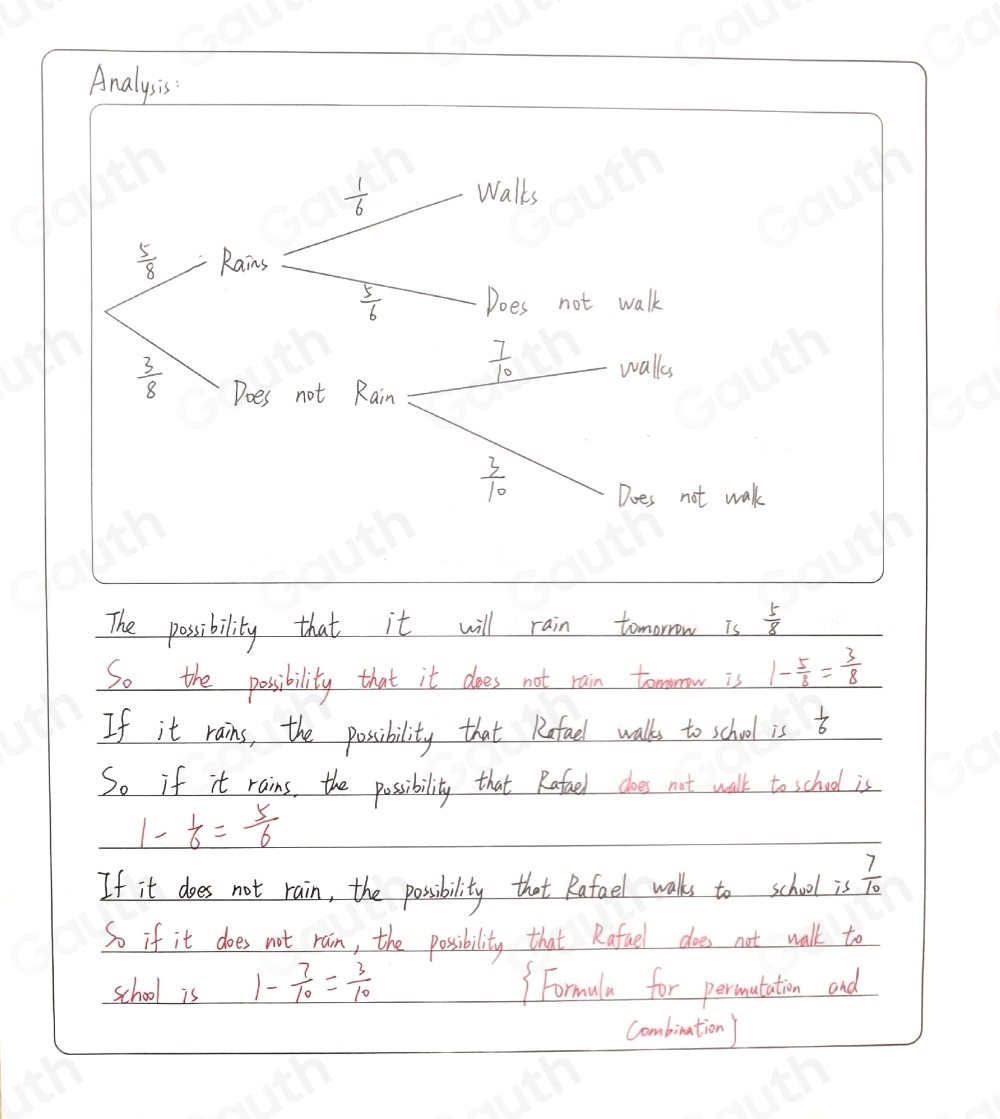 Analysis:
1/6
Walks
5/8
Rains
5/6
Does not walk
7/10
walks
3/8
Does not Rain
3/10
Does not walk
The possibility that it will rain tomorrow is 5/8
So the possibility that it does not rain tomorrow is 1-5/8=3/8
If it rains, the possibility that Rafael walks to school is 1/6
So if it rains, the possibility that Rafael does not walk to school is
1-1/6=5/6
If it does not rain, the possibility that Rafael walks to school is 7/10
So if it does not rain, the possibility that Rafael does not walk to
school is 1-7/10=3/10 {Formula for permutation and
combination}
Gauth